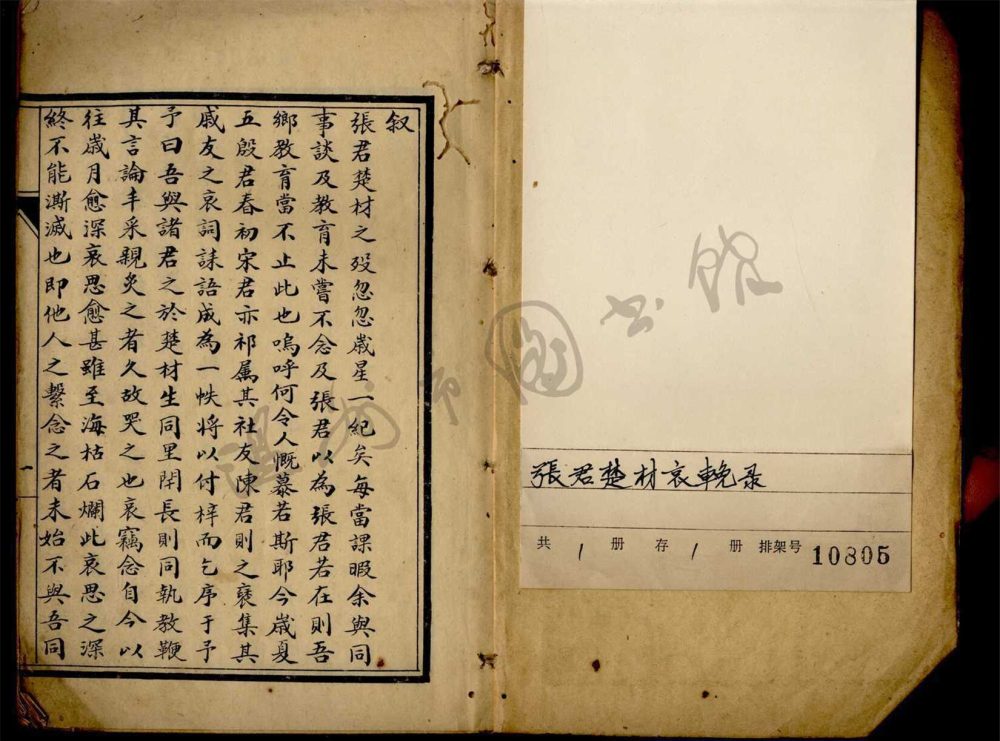 叙
張君楚材之歿忽忽歲星一紀矣每當課暇余與同
事談及教育未嘗不念及張君以為張君若在則吾
鄉教育當不止此也嗚呼何令人慨慕若斯耶今歲夏
五殷君春初宋君亦祁属其社友陳君則之裒集其
戚友之哀詞誄語成為一帙將以付梓而乞序于予
予曰吾與諸君之於楚材生同里閈長則同執教鞭
其言論丰采親炙之者久故哭之也哀竊念自今以
往歲月愈深哀思愈甚雖至海枯石爛此哀思之深
終不能澌滅也即他人之繫念之者未始不與吾同
張君楚材哀輓录
共 1 册 存 1 册 排架号 10805
州市圖书館